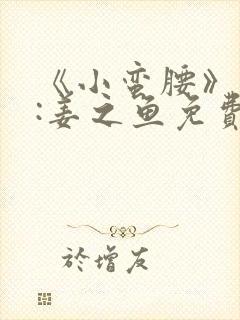 《小蛮腰》
:姜之鱼免費
於增友